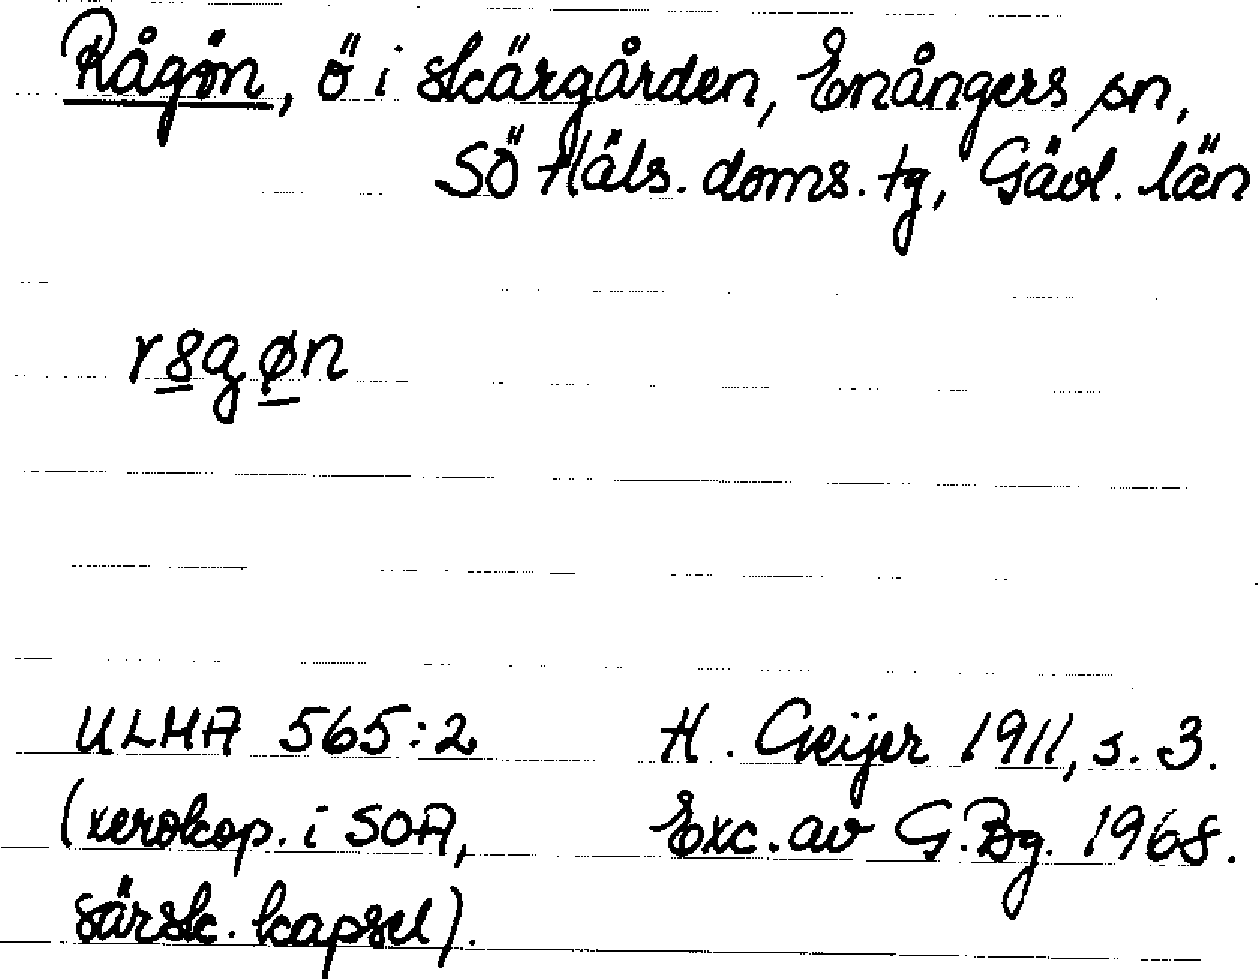 Rågön, ö i skärgården, Enångers sn,
SÖ Häls. doms. tg, Gävl. län
r8gøn
ULMA 565:2 H. Geijer 1911, s. 3.
(xerokop. i SOA, Exc. av G. Bg. 1968.
särsk. kapsel).